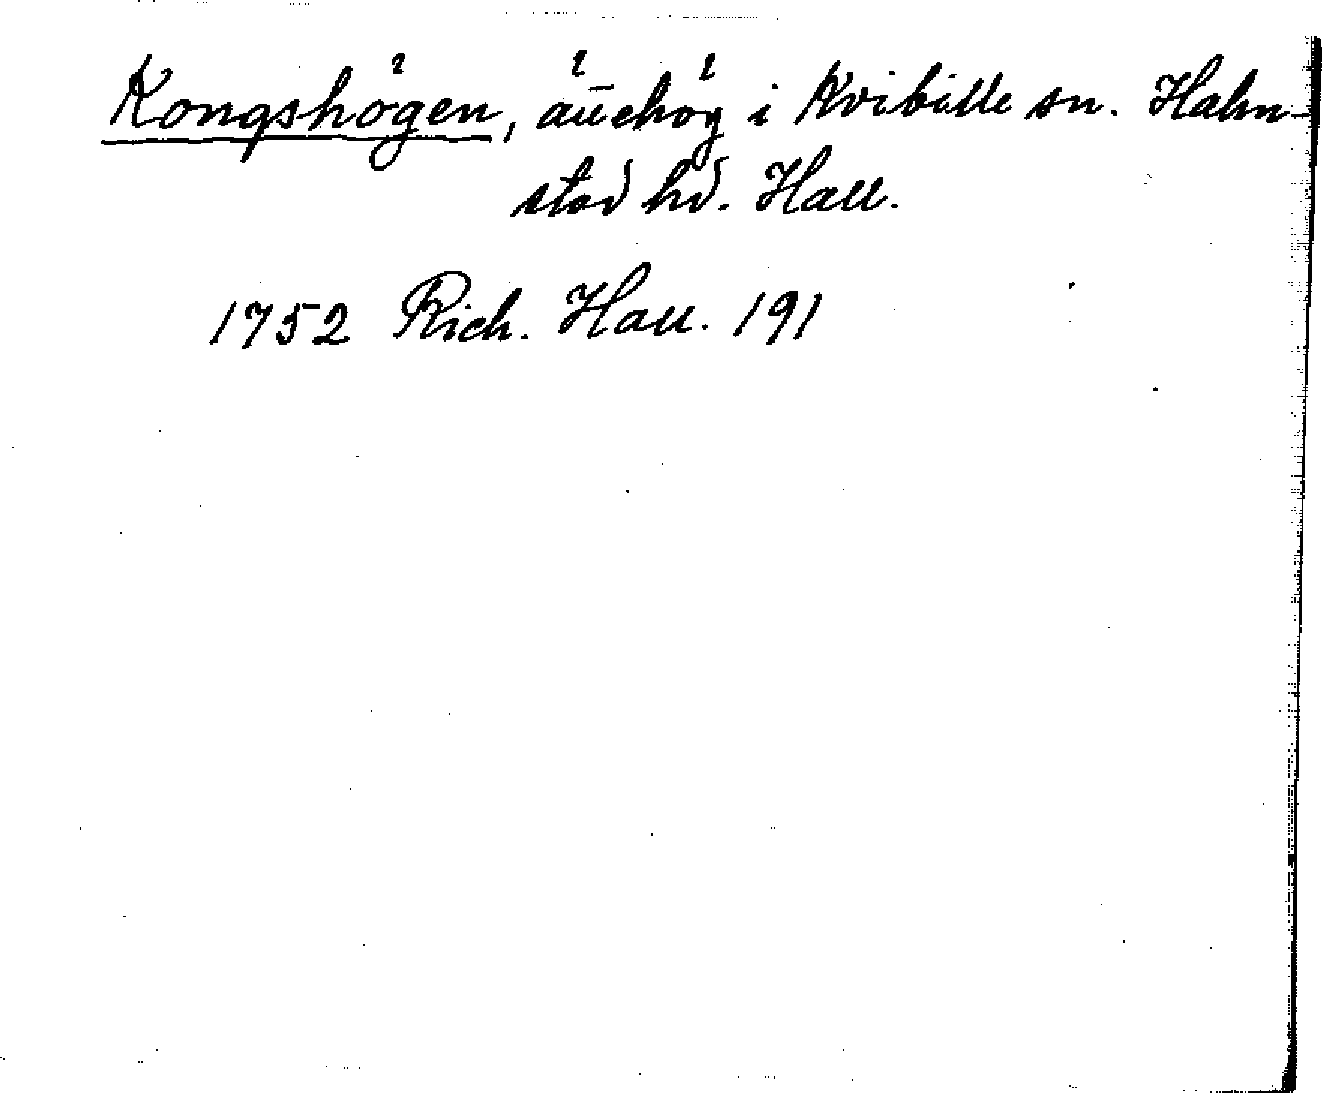 Kongshögen, ättehög i Kvibille sn. Halm-
stad hd. Hall.
1752 Rich. Hall. 191